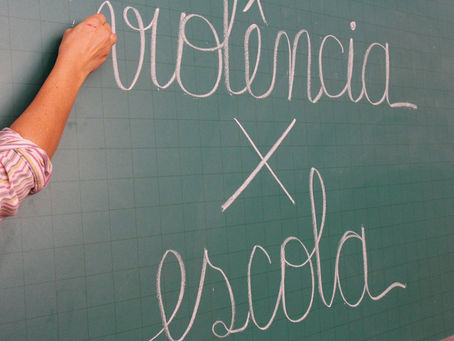 violência
x
escola